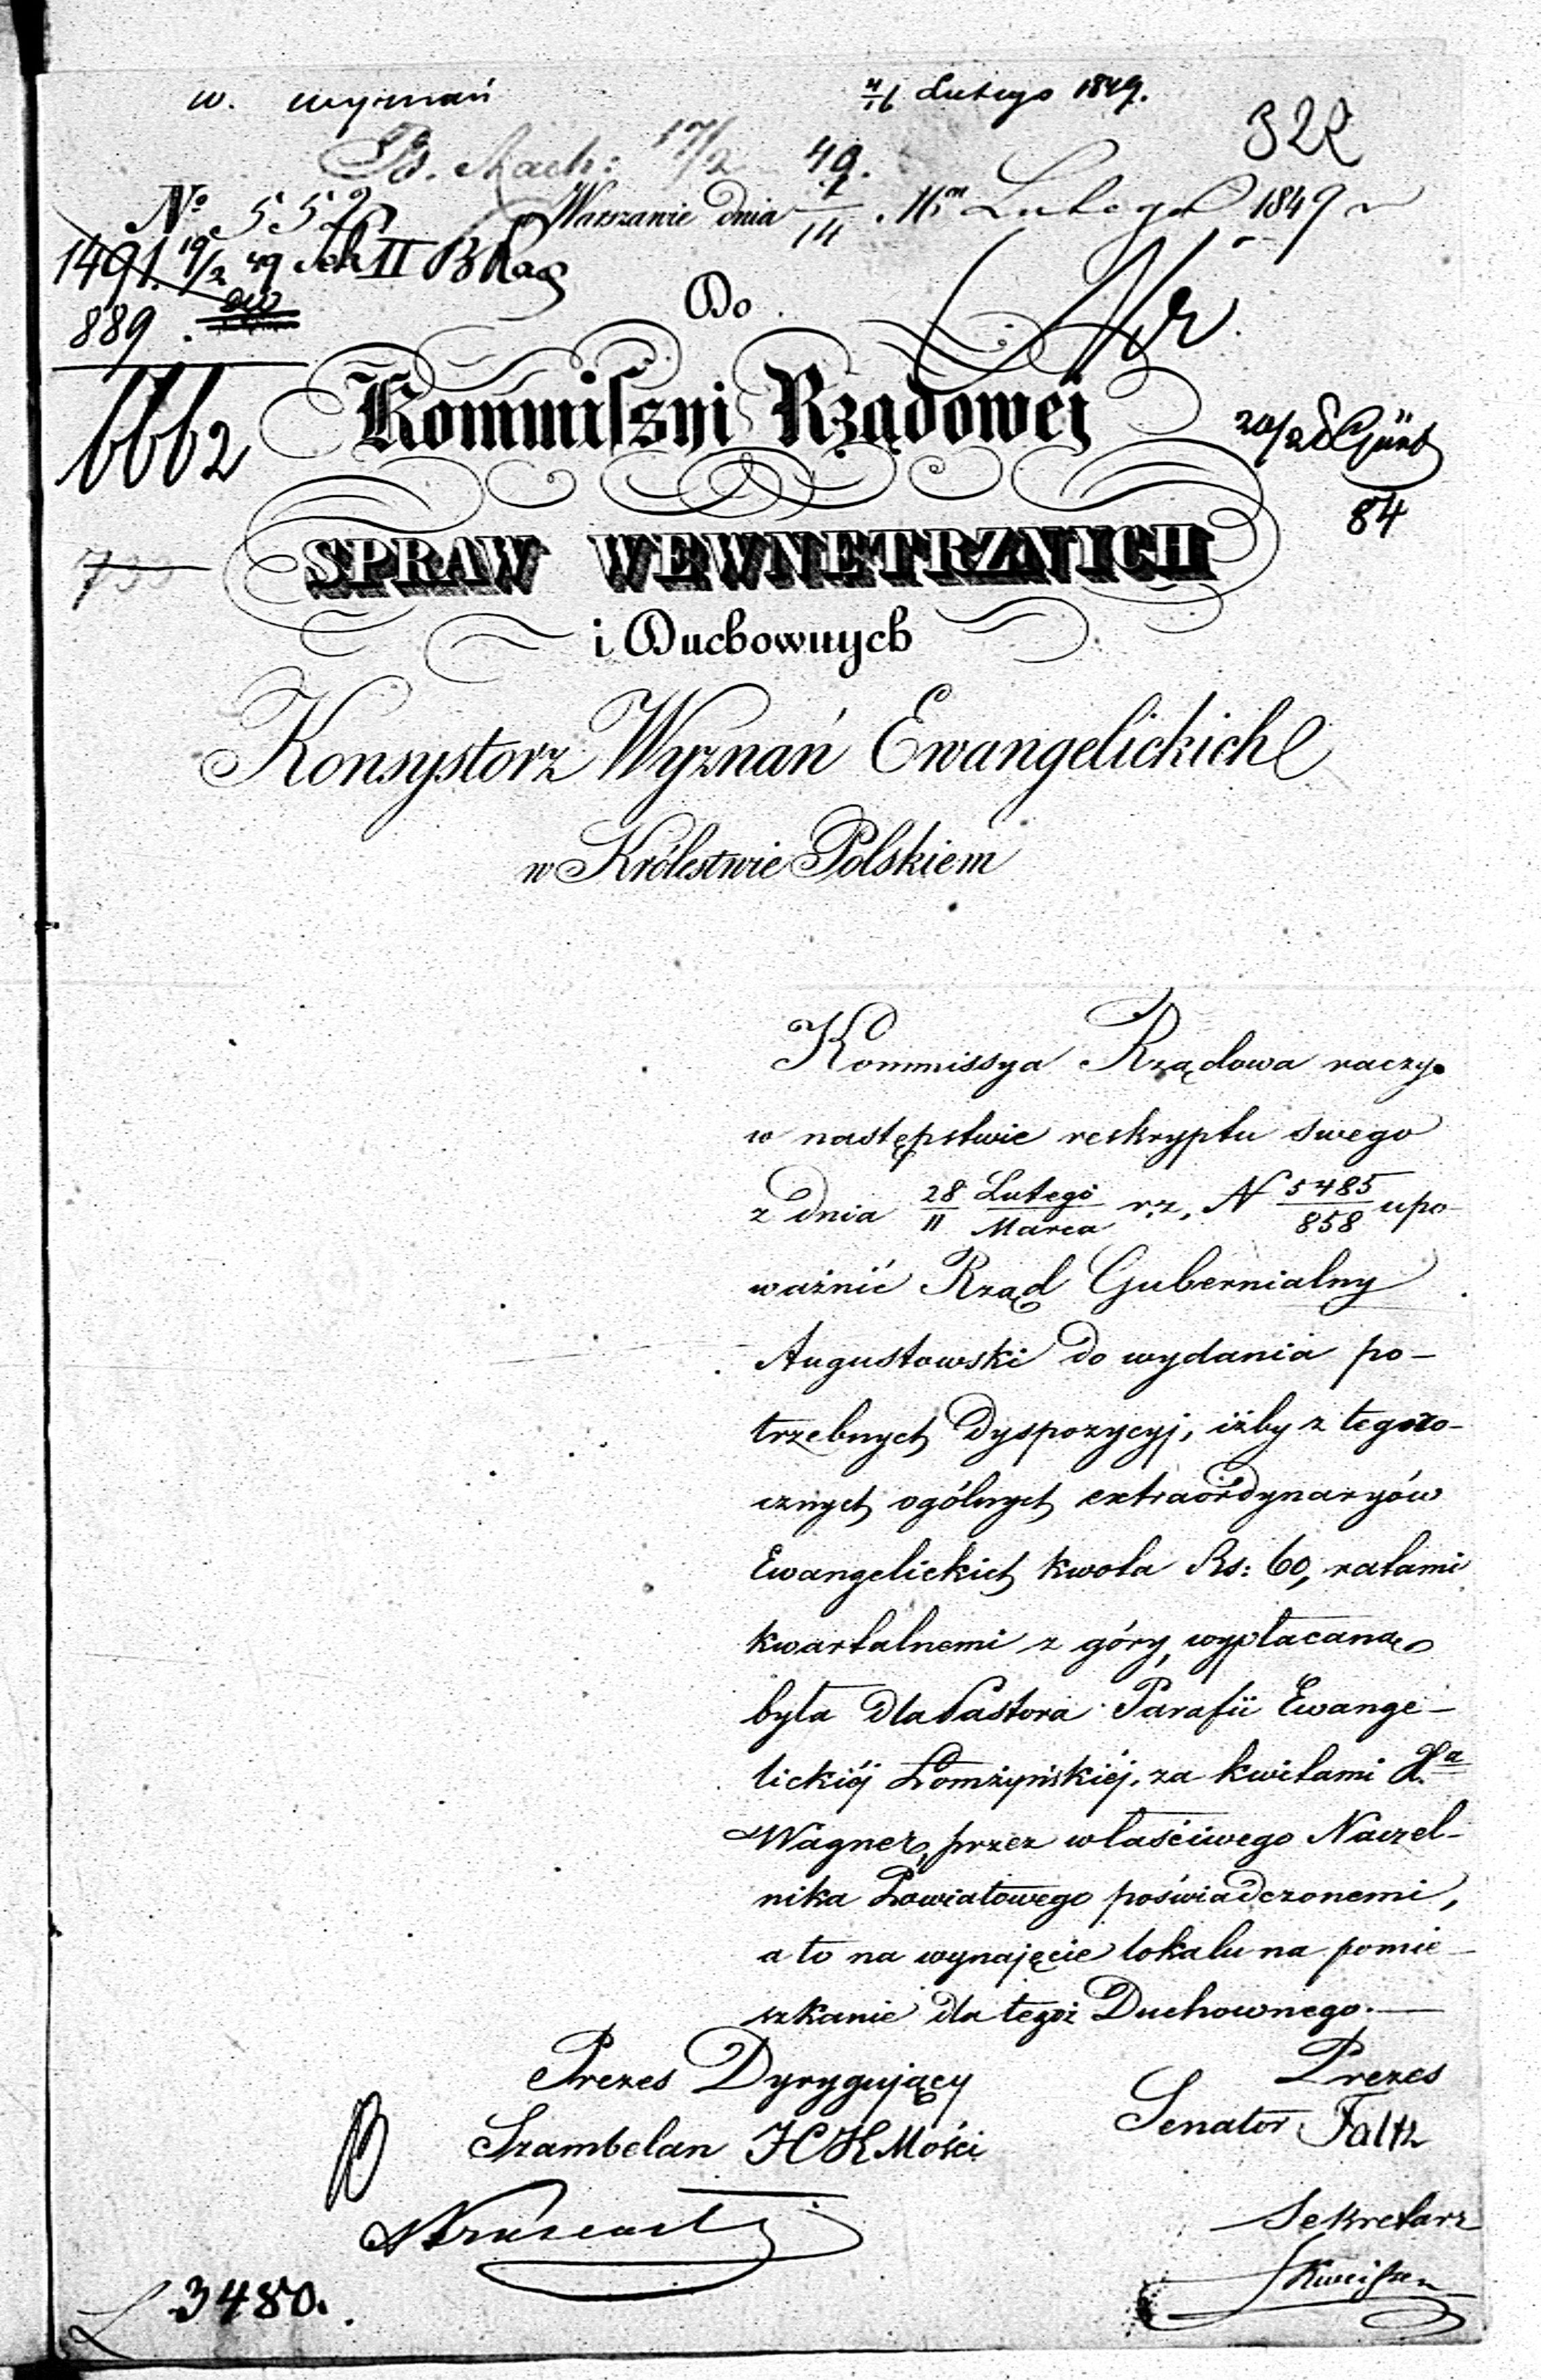 w. wyznań 4/16 Lutego 1849.
322
17/2 49.
№ 552 Warszawie dnia 2/14 Lutego 1849 r
1491. 19/2 49 Sek II
889.
Do
6662
Kommissyi Rządowej
20/2
84
SPRAW WEWNETRZNYCH
i Duchownych
Konsystorz Wyznań Ewangelickich
w Królestwie Polskiem
Kommissya Rządowa raczy
w następstwie reskryptu swego
z dnia 28/11 Lutego/Marca r. z. N 5485/858 upo-
ważnić Rząd Gubernialny
Augustowski do wydania po-
trzebnych dyspozycyj, iżby z tegoro-
cznych ogólnych extraordynaryów
Ewangelickich kwota Rs: 60, ratami
kwartalnemi z góry, wypłacaną
była dla Pastora Parafii Ewange-
lickiéj Łomżyńskiéj, za kwitami Xa
Wagner, przez właściwego Naczel-
nika Powiatowego poświadczonemi,
a to na wynajęcie lokalu na pomie-
szkanie dla tegoż Duchownego.—
Prezes Dyrygujący Prezes
Szambelan JCKMości Senator Faltz
Sekretarz
3480.